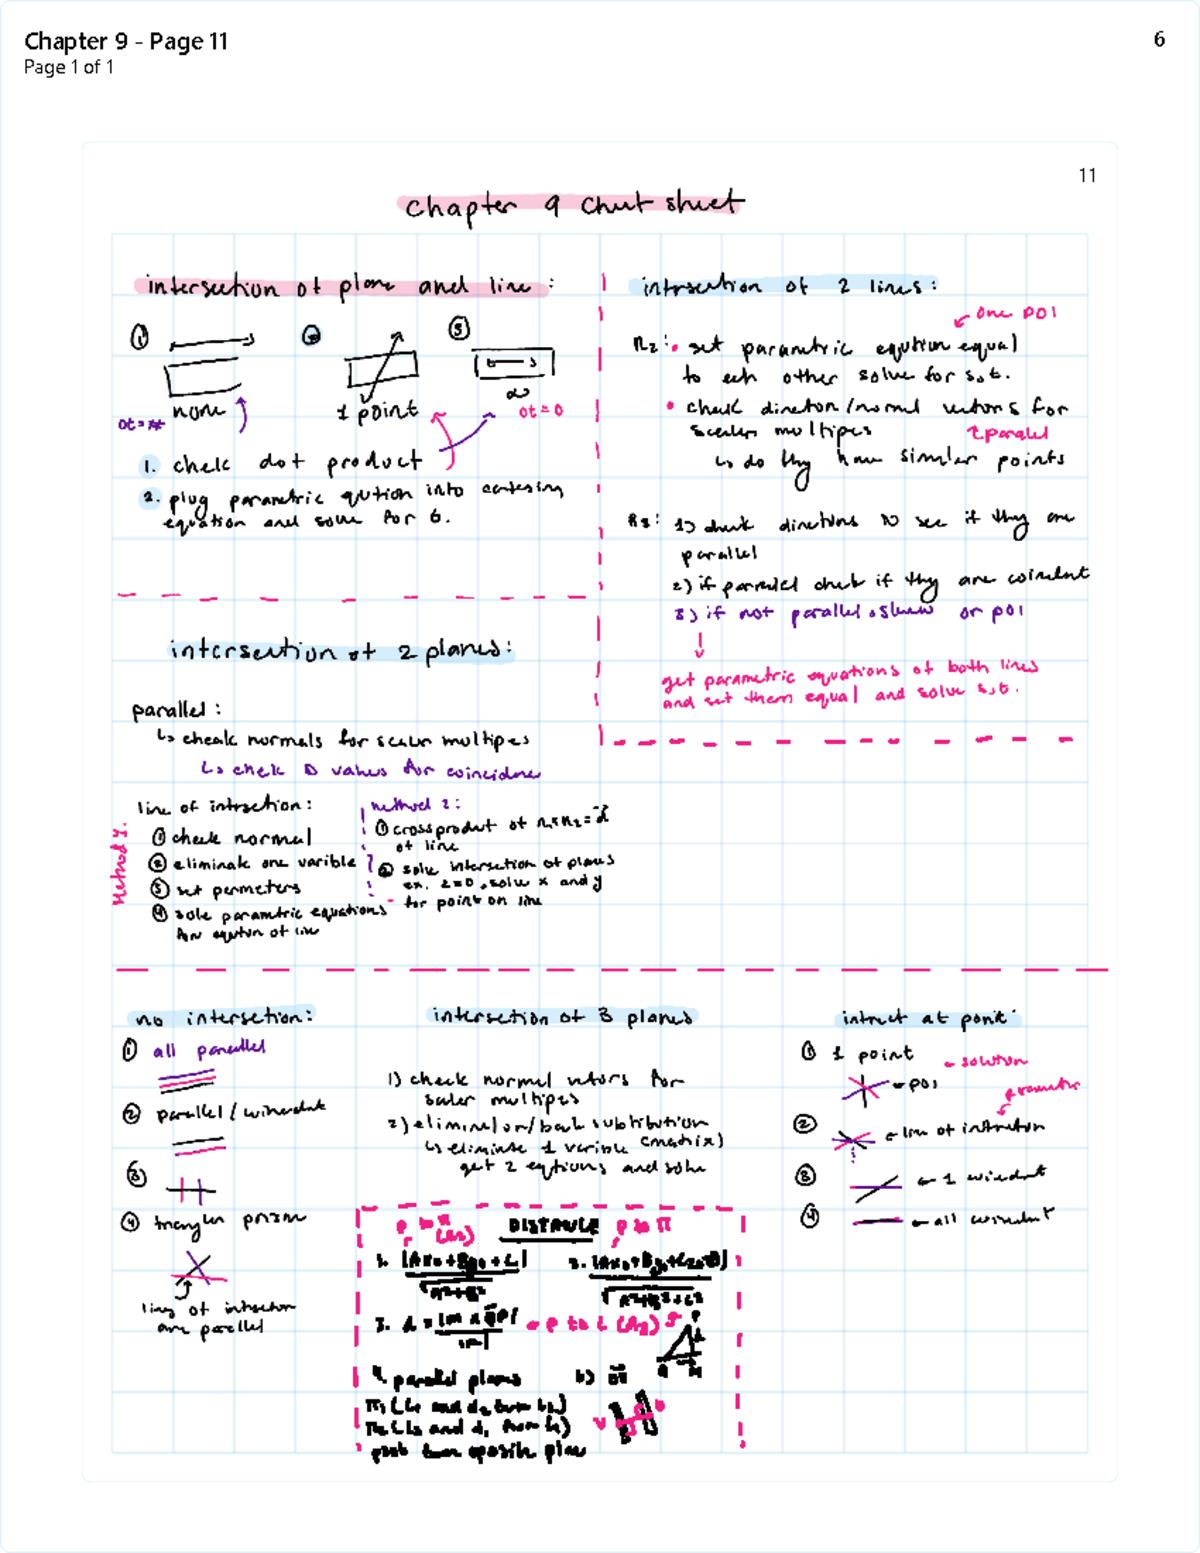 Chapter 9 - Page 11
6
Page 1 of 1
11
Chapter 9 Cheat sheet
intersection of plane and line:
① ② ③
none
1 point
∞
dt=#
dt=0
1. check dot product
2. plug parametric eqution into cartesian
equation and solve for t.
intersection of 2 lines:
one POI
R2: • set parametric eqution equal
to eah other solve for s,t.
• check direction/normal vectors for
scaler multipes
parallel
↳ do they have similar points
R3: 1) check directions to see if they are
parallel
2) if parallel check if they are coincident
3) if not parallel, skew or poi
get parametric equations of both lines
and set them equal and solve s,t.
intersection of 2 planes:
parallel:
↳ cheak normals for scaler multipes
↳ chek D values for coincidence
Method 1.
line of intrsection:
① check normal
② eliminate one varible
③ set permeters
④ solve parametric equations
for eqution of line
method 2:
① crossproduct of n₁×n₂=d
of line
② solve intersection of planes
ex. z=0, solve x and y
for point on line
no intersetion:
① all parallel
② parallel / coincident
③
④ trianguler prism
lines of intersection
are parallel
intersection of 3 planes
1) check normal vectors for
scaler multipes
2) elimine/or/back substitution
↳ eliminate 1 varible (matrix)
get 2 eqtions and solve
intrsct at point:
① 1 point
- solution
- POI
parametric
② ← line of intersection
③ ← 1 coincident
④ ← all coincident
DISTANCE
P to π
(R2)
P to π
1. |Ax₀+By₀+C|
√A²+B²
2. |Ax₀+By₀+Cz₀+D|
√A²+B²+C²
3. d = |m × QP|
|m|
← P to L (R3)
4. parallel planes
b)
π₁ (L₁ and d₂ from L₂)
π₂ (L₂ and d₁ from L₁)
point from oposite plane